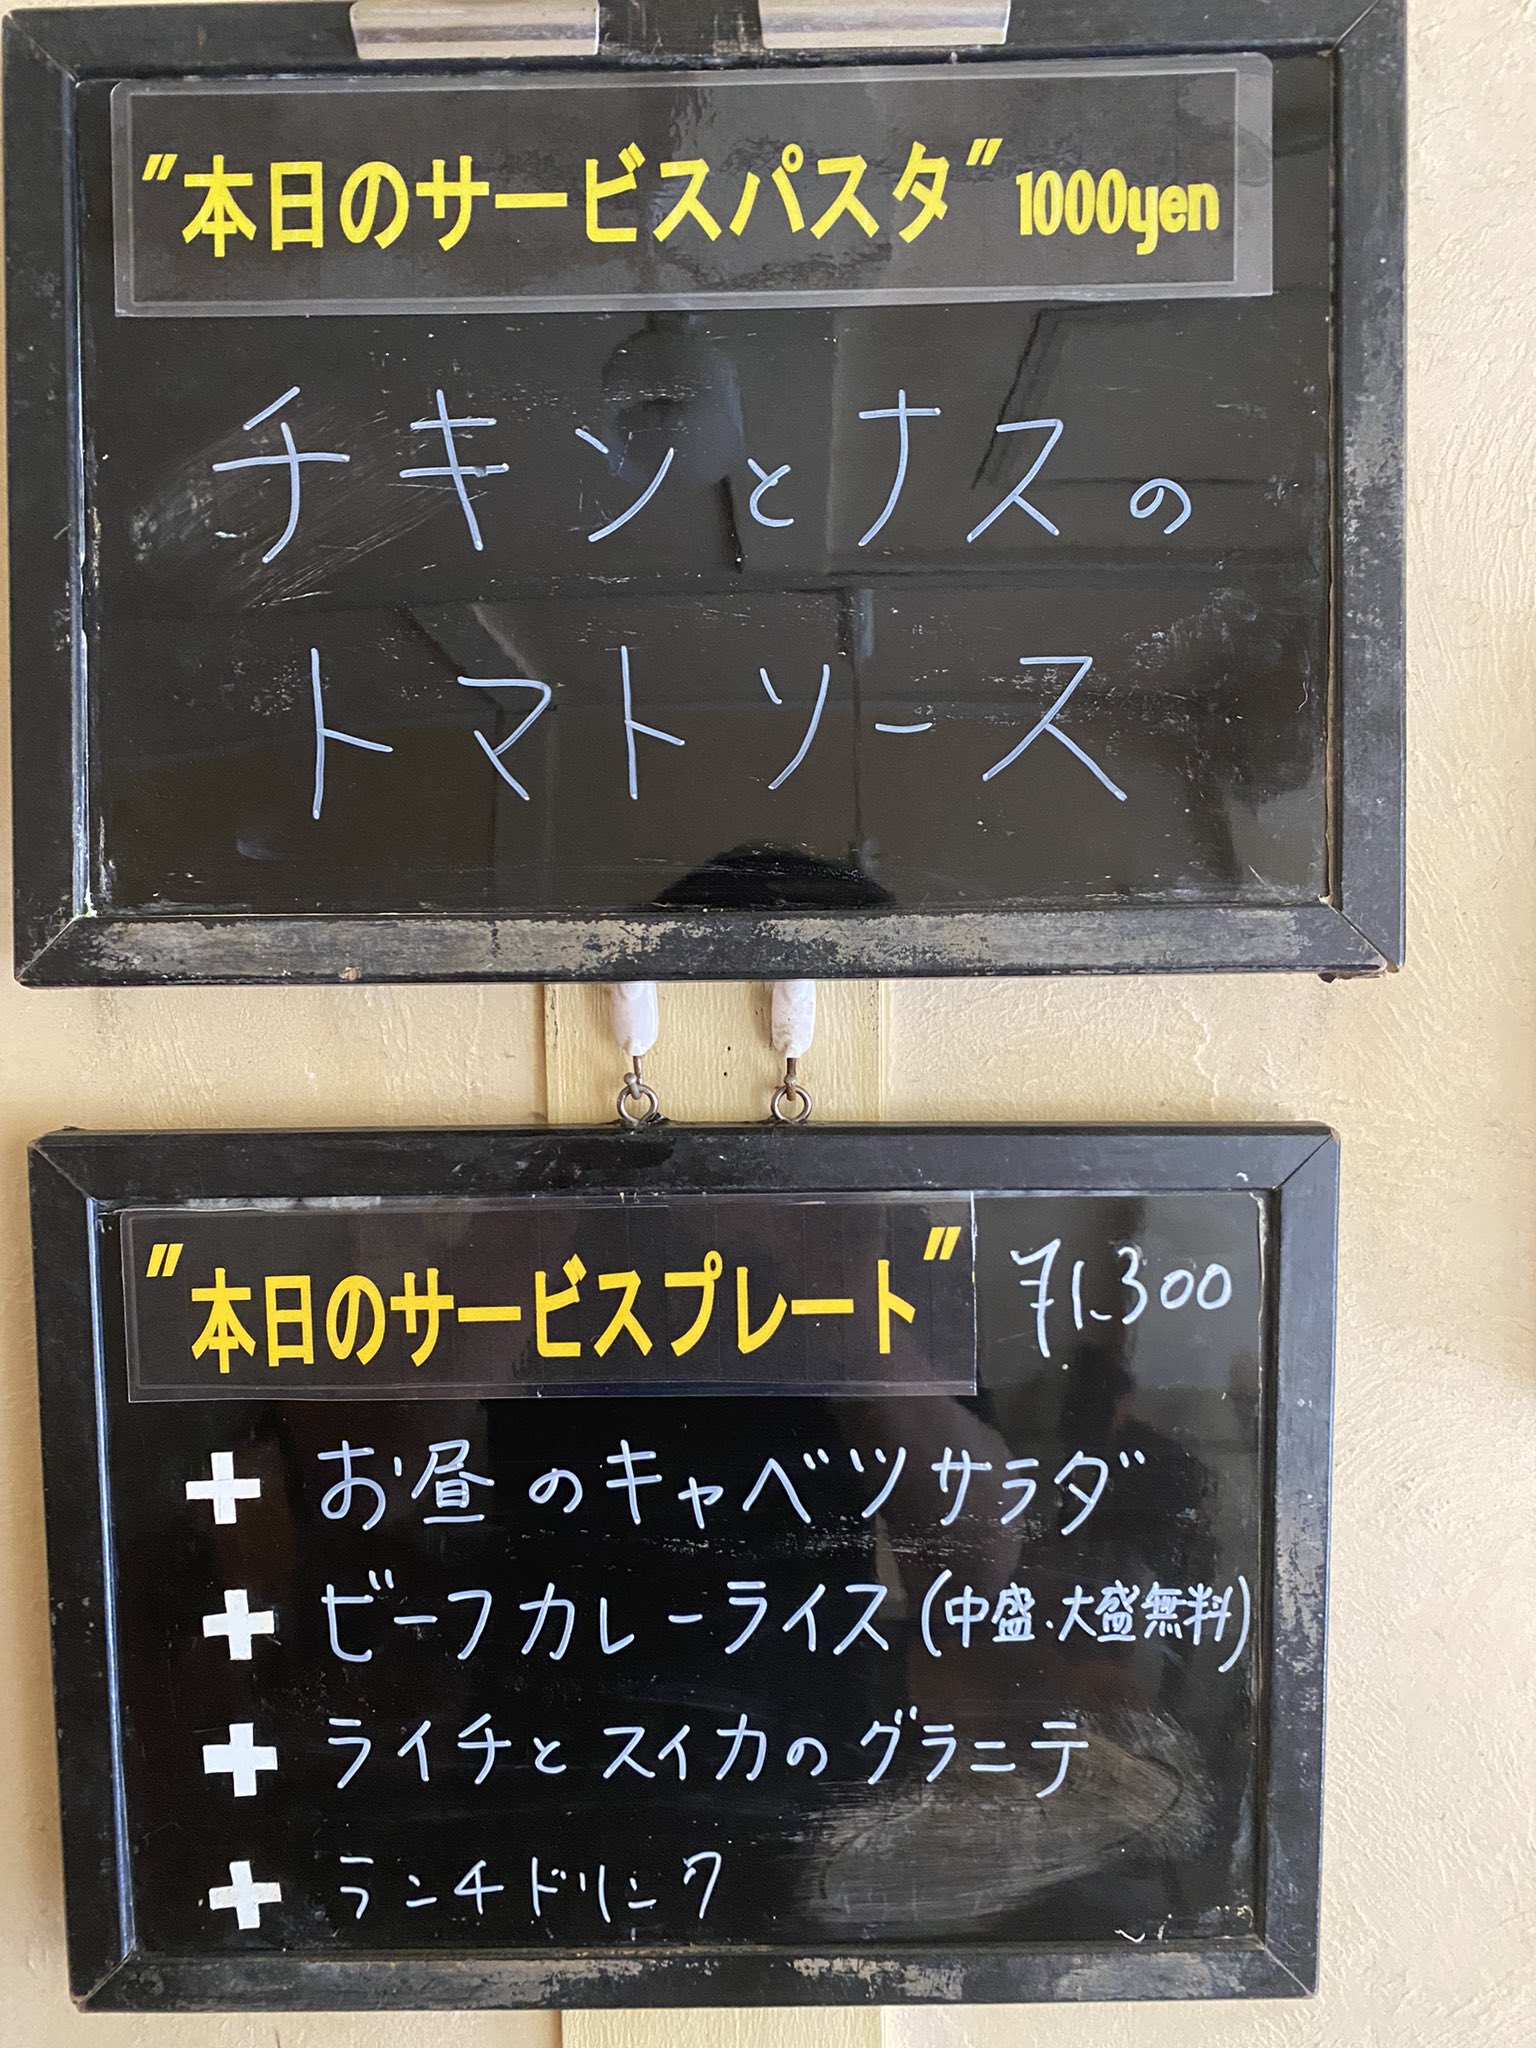 "本日のサービスパスタ" 1000yen
チキンとナスの
トマトソース
"本日のサービスプレート" ¥1,300
+ お昼のキャベツサラダ
+ ビーフカレーライス(中盛・大盛無料)
+ ライチとスイカのグラニテ
+ ランチドリンク